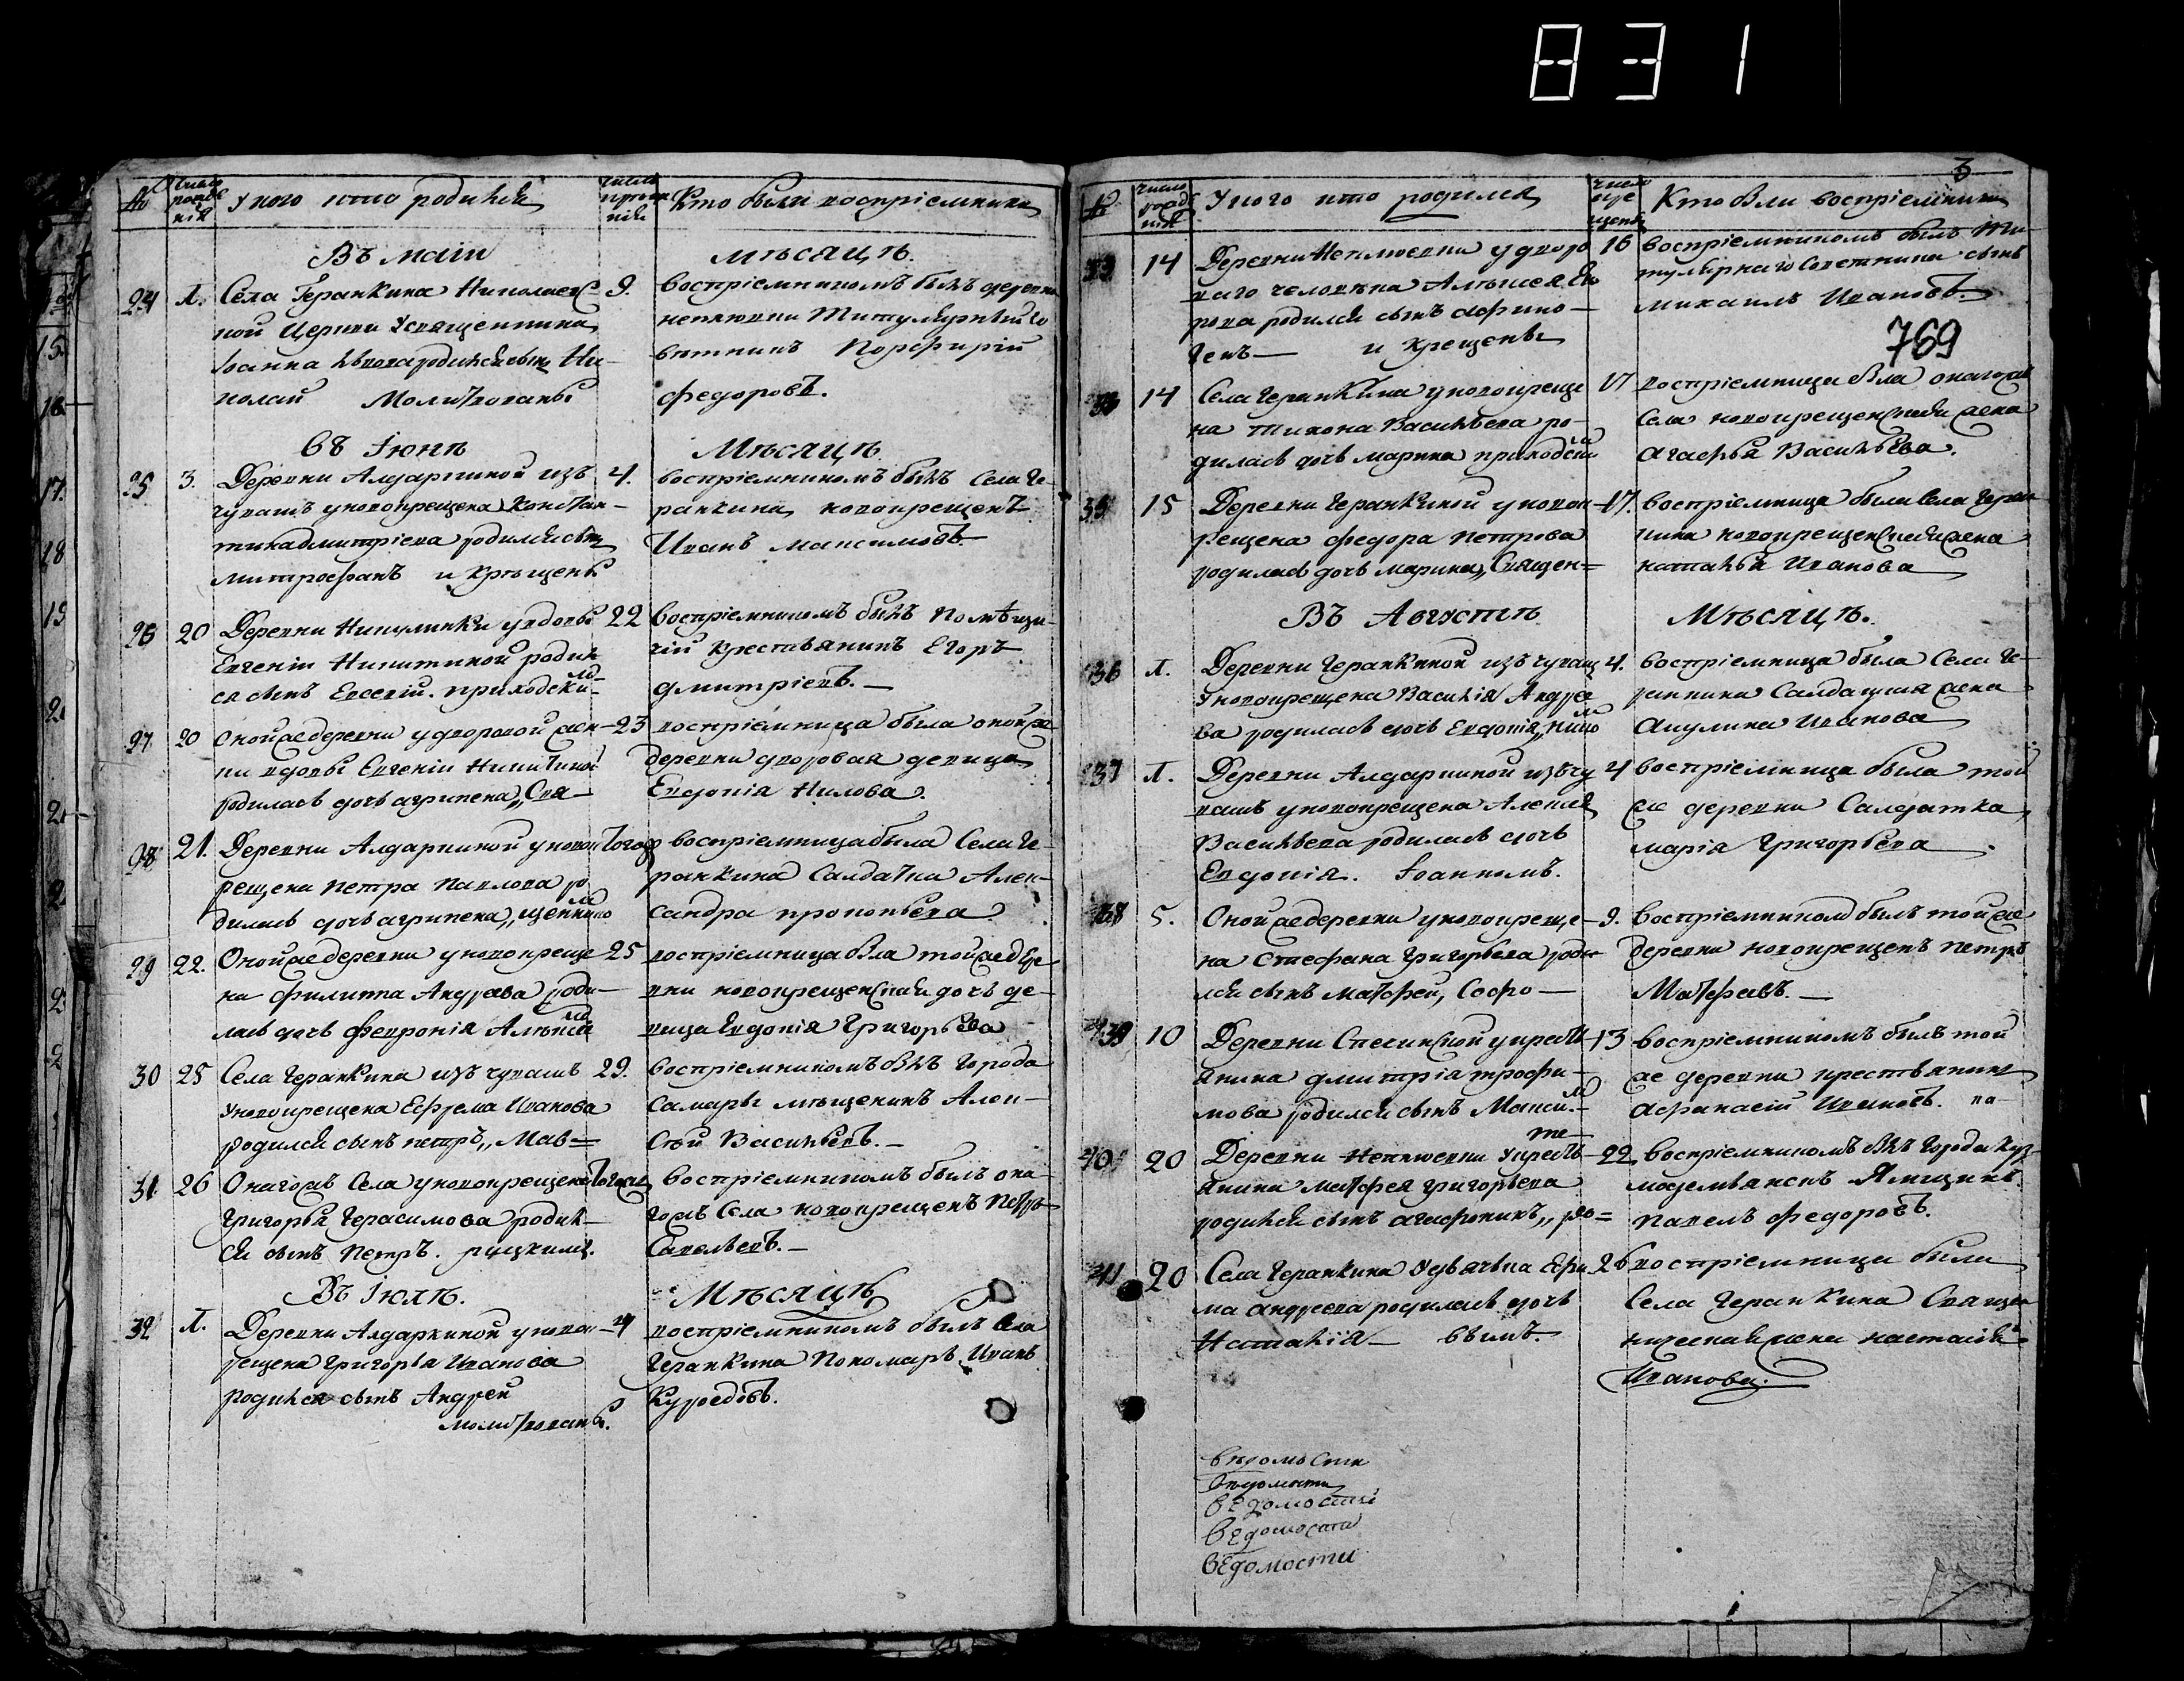 831
№
число рожде нія
У кого кто родился
число креще нія
Кто были воспріемники
Въ маіи
мѣсяцѣ.
24 1. Села Геранкина Николаевс 9.
ной Церкви Усвященника
Іоанна Львова родился сынъ Ни-
колай Молитвованы
воспріемникомъ былъ деревни
неплюевки Титулярный со
вѣтникъ Порфирій
Федоровъ.
въ Іюнѣ
Мѣсяцѣ
25 3. Деревни Алдаркиной изъ 4.
чувашъ уновокрещена Констан-
тина дмитріева родился сынъ
митрофанъ и крещены
воспріемникомъ былъ Села Ге-
ранкина новокрещенъ
Иванъ максимовъ
26 20 Деревни Никулинки увдовы 22
Евгеніи Никитиной родил
ся сынъ Евсевій. приходски-
ми
воспріемникомъ былъ Помѣщи-
чій крестьянинъ Егоръ
дмитріевъ.
27 20 Оной же деревни удворовой жен- 23
ки вдовы Евгеніи Никитиной
родилась дочь агрипена, Свя-
воспріемница была оной же
деревни дворовая девица
Евдокія Нилова.
28 21. Деревни Алдаркиной уновок тогож
рещена петра павлова ро
дилась дочь агрипена, щенико
ма
воспріемница была Села Ге-
ранкина Салдатка Алек-
сандра прокопьева
29 22. Оной же деревни уновокреще 25
на филиппа Андреева роди-
лась дочь февронія Алексіе
ма
воспріемница бла той же дере
вни новокрещенская дочь де-
вица Евдокія Григорьева
30 25 Села Геранкина изъ чувашъ 29.
уновокрещена Ефрема Иванова
родился сынъ петръ, Мав=
воспріемникомъ былъ Города
Самары мѣщенинъ Алек-
сѣй Васильевъ.
31 26 Онагожъ Села уновокрещена тогож
Григорья Герасимова родил-
ся сынъ Петръ. руцкимъ.
воспріемникомъ былъ она-
гожъ Села новокрещенъ Петръ
Савельевъ.
Въ Іюлѣ.
Мѣсяцѣ
32 1. Деревни Алдаркиной уновок- 4
рещена Григорья Иванова
родился сынъ Андрей
Молитвованы.
воспріемникомъ былъ Села
Геранкина Пономарь Иванъ
Куроедовъ.
3
№
число рожде нія
У кого кто родился
число кре щенія
Кто были воспріемники
33 14 Деревни Неплюевки удворо 16
ваго человѣка Алексея Его
рова родился сынъ афино-
генъ и крещены
воспріемникомъ былъ Ти-
тулярнаго Советника сынъ
михаилъ Ивановъ.
769
34 14 Села Геранкина уновокреще 17
на тихона Васильева ро-
дилась дочь марина приходски
ми
воспріемница бла онагожъ
Села новокрещенская жена
агафья Васильева.
35 15 Деревни Геранкиной уновок- 17.
рещена федора петрова
родилась дочь марина, Священ=
воспріемница была Села Геран
кина новокрещенская жена
наталья Иванова
Въ Августѣ
Мѣсяцѣ.
36 1. Деревни Геранкиной изъ чуваш 4.
уновокрещена Василія Андрее
ва родилась дочь Евдокія, нико
ма
воспріемница была Села Ге-
ранкина Салдацкая жена
акулина Иванова
37 1. Деревни Алдаркиной изъ чу 4
вашъ уновокрещена Алексея
Васильева родилась дочь
Евдокія. Іоанномъ.
воспріемница была той
же деревни Салдатка
марія Григорьева
38 5. Оной же деревни уновокреще- 9.
на Стефана Григорьева роди-
лся сынъ Матфей, Софо-
воспріемником былъ той же
деревни новокрещенъ петръ
Матфеевъ.
39 10 Деревни Спесинской укресть- 13
янина дмитрія трофи-
мова родился сынъ Макси-
мъ
воспріемникомъ былъ той
же деревни крестьянинъ
афанасій Ивановъ.
40 20 Деревни Неплюевки укресть- 22
янина Матфея григорьева
родился сынъ агафоникъ, ро=
воспріемникомъ былъ Города Куз-
модемьянскъ Ямщикъ
павелъ федоровъ.
41 20 Села Геранкина Удьячька Ефи 26
ма андреева родилась дочь
Наталія
воспріемница были
Села Геранкина Священ
ническая жена настасія
Иванова.
ведомости
ведомости
ведомости
ведомости
ведомости